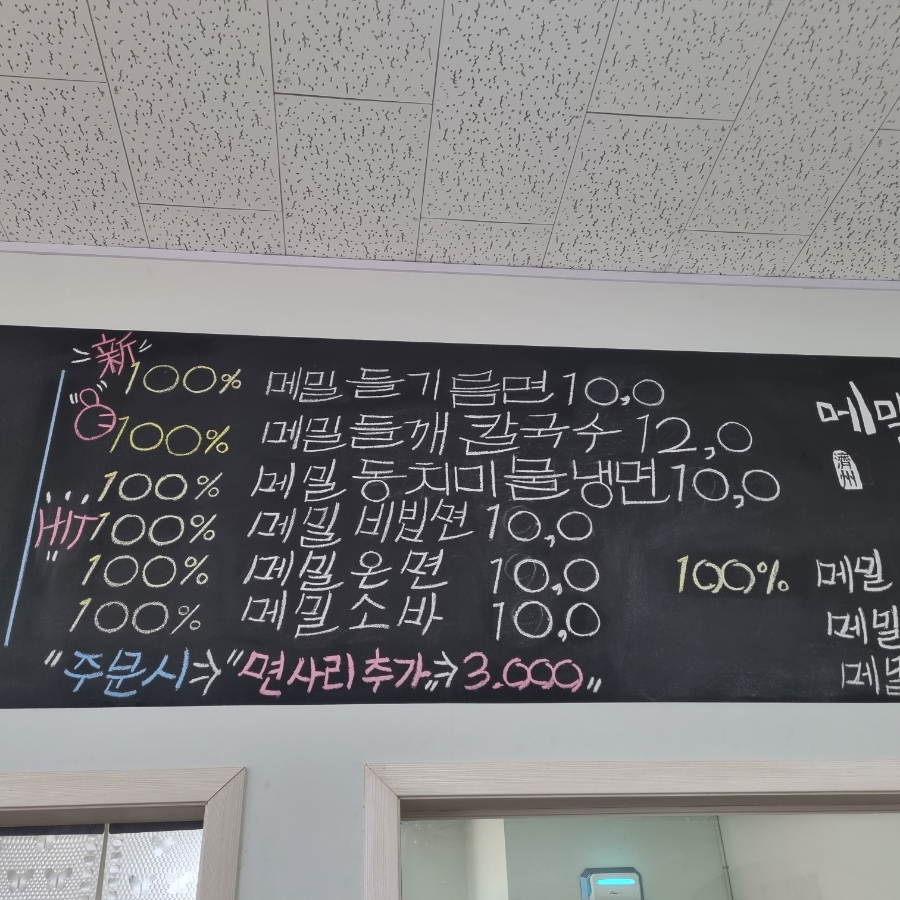 新
100% 메밀 들기름면 10,0
100% 메밀들깨 칼국수 12,0
100% 메밀 동치미물냉면 10,0
100% 메밀 비빔면 10,0
100% 메밀 온면 10,0
100% 메밀 소바 10,0
"주문시⇒ "면사리 추가"⇒ 3.000"
메밀
濟州
100% 메밀
메밀
메밀